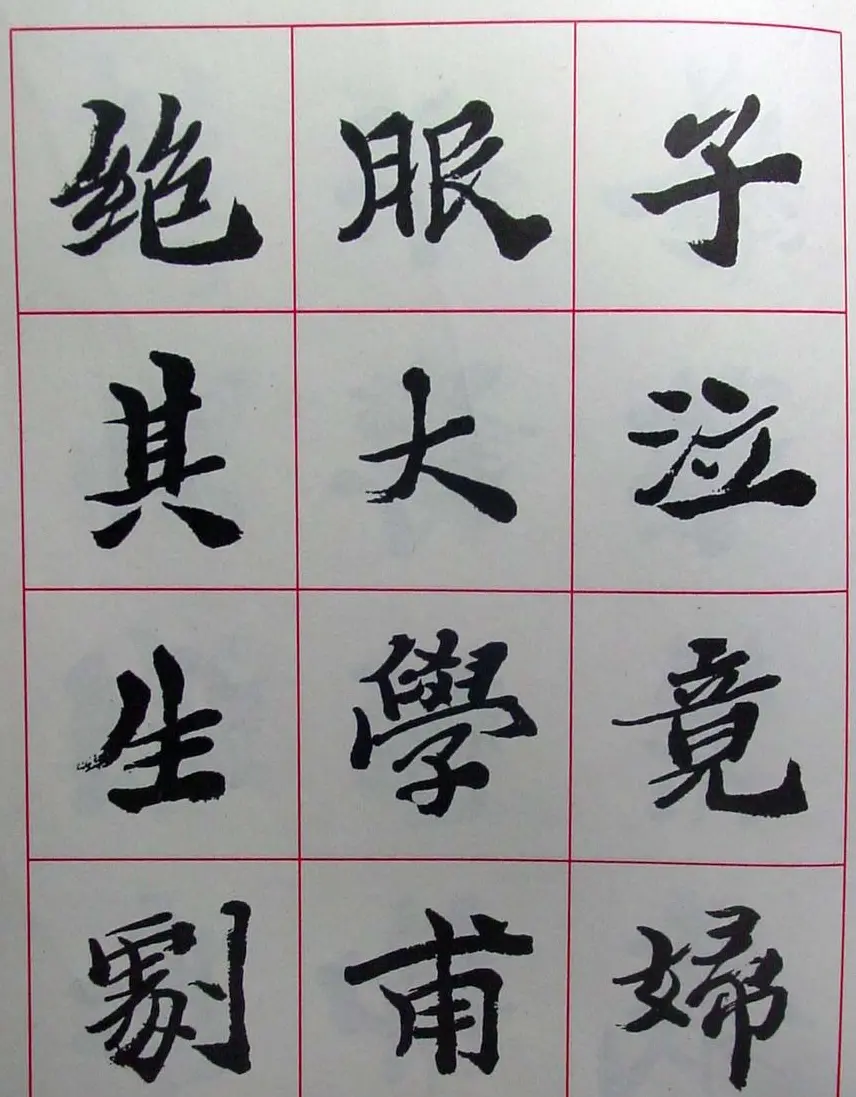 子泣竟婦
服大學甫
絕其生劇